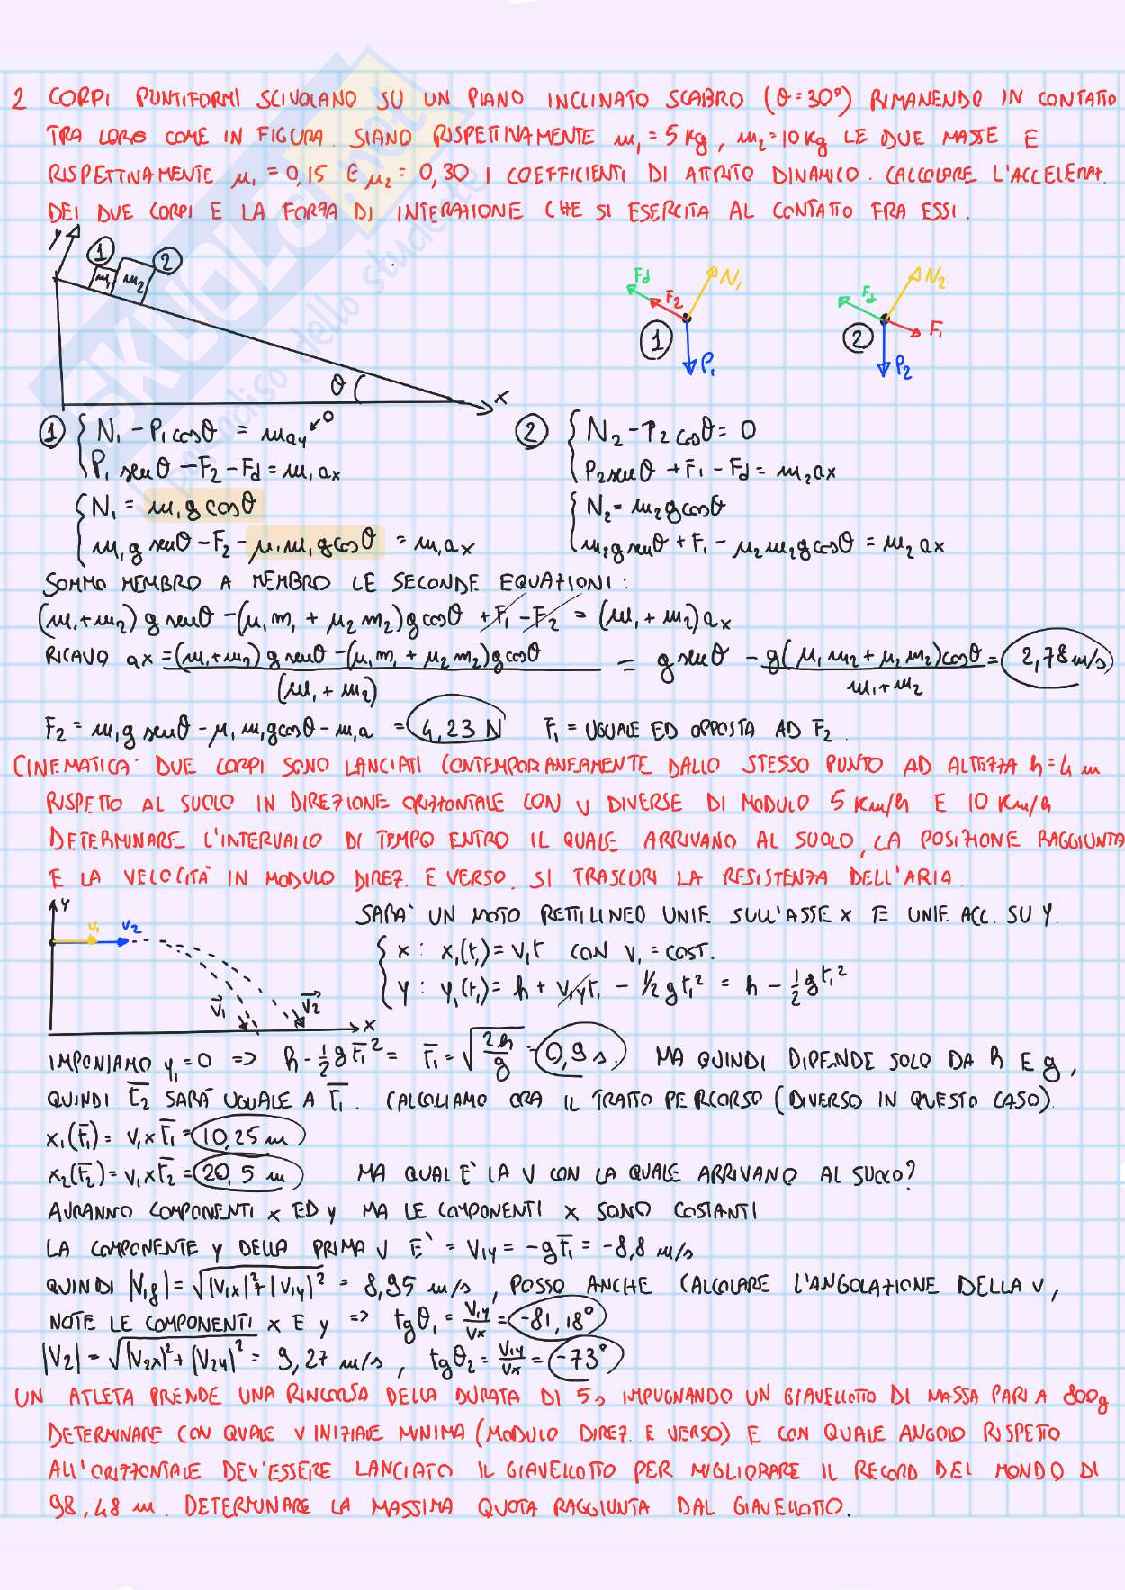 2 CORPI PUNTIFORMI SCIVOLANO SU UN PIANO INCLINATO SCABRO (θ=30°) RIMANENDO IN CONTATTO
TRA LORO COME IN FIGURA. SIANO RISPETTIVAMENTE m₁=5 Kg, m₂=10 Kg LE DUE MASSE E
RISPETTIVAMENTE μ₁=0,15 E μ₂=0,30 I COEFFICIENTI DI ATTRITO DINAMICO. CALCOLARE L'ACCELERAT.
DEI DUE CORPI E LA FORZA DI INTERAZIONE CHE SI ESERCITA AL CONTATTO FRA ESSI.
y 1 2 m₁ m₂ θ x
Fd F₂ N₁ 1 P₁
Fd N₂ F₁ 2 P₂
1 { N₁ - P₁cosθ = may → 0
P₁ senθ - F₂ - Fd = m₁ax
2 { N₂ - P₂cosθ = 0
P₂senθ + F₁ - Fd = m₂ax
{ N₁ = m₁gcosθ
m₁g senθ - F₂ - μ₁m₁gcosθ = m₁ax
{ N₂ - m₂gcosθ
m₂gsenθ + F₁ - μ₂m₂gcosθ = m₂ax
SOMMO MEMBRO A MEMBRO LE SECONDE EQUAZIONI:
(m₁+m₂) g senθ - (μ₁m₁ + μ₂m₂)gcosθ + F₁ - F₂ = (m₁ + m₂)ax
RICAVO ax = (m₁+m₂) g senθ - (μ₁m₁ + μ₂m₂)gcosθ / (m₁ + m₂) = g senθ - g(μ₁m₂ + μ₂m₂)cosθ / m₁+m₂ = 2,78 m/s
F₂ = m₁g senθ - μ₁m₁gcosθ - m₁a = 4,23 N F₁ = UGUALE ED OPPOSTA AD F₂.
CINEMATICA: DUE CORPI SONO LANCIATI CONTEMPORANEAMENTE DALLO STESSO PUNTO AD ALTEZZA h=4 m
RISPETTO AL SUOLO IN DIREZIONE ORIZZONTALE CON V DIVERSE DI MODULO 5 Km/h E 10 Km/h
DETERMINARE L'INTERVALLO DI TEMPO ENTRO IL QUALE ARRIVANO AL SUOLO, LA POSIZIONE RAGGIUNTA
E LA VELOCITÀ IN MODULO DIREZ. E VERSO. SI TRASCURI LA RESISTENZA DELL'ARIA.
y v₁ v₂ v₁ v₂ x
SARA' UN MOTO RETTILINEO UNIF. SULL'ASSE X E UNIF. ACC. SU Y.
{ x: x₁(t₁) = v₁t CON v₁ = COST.
y: y₁(t₁) = h + v₁yt₁ - 1/2 gt₁² = h - 1/2 gt₁²
IMPONIAMO y₁=0 => h - 1/2 g t̄₁² = t̄₁ = √2h/g = 0,9 s MA QUINDI DIPENDE SOLO DA h E g,
QUINDI t̄₂ SARÀ UGUALE A t̄₁. CALCOLIAMO ORA IL TRATTO PERCORSO (DIVERSO IN QUESTO CASO).
x₁(t̄₁) = v₁x t̄₁ = 10,25 m
x₂(t̄₂) = v₁x t̄₂ = 20,5 m MA QUAL E' LA V CON LA QUALE ARRIVANO AL SUOLO?
AVRANNO COMPONENTI x ED y MA LE COMPONENTI x SONO COSTANTI
LA COMPONENTE y DELLA PRIMA V E' = V₁y = -g t̄₁ = -8,8 m/s
QUINDI |V₁g| = √|V₁x|² + |V₁y|² = 8,95 m/s, POSSO ANCHE CALCOLARE L'ANGOLAZIONE DELLA V,
NOTE LE COMPONENTI x E y => tgθ₁ = V₁y/Vx = -81,18°
|V₂| = √|V₂x|² + |V₂y|² = 9,27 m/s, tgθ₂ = V₁y/Vx = -73°
UN ATLETA PRENDE UNA RINCORSA DELLA DURATA DI 5s IMPUGNANDO UN GIAVELLOTTO DI MASSA PARI A 800g
DETERMINARE CON QUALE V INIZIALE MINIMA (MODULO DIREZ. E VERSO) E CON QUALE ANGOLO RISPETTO
ALL'ORIZZONTALE DEV'ESSERE LANCIATO IL GIAVELLOTTO PER MIGLIORARE IL RECORD DEL MONDO DI
98,48 m. DETERMINARE LA MASSIMA QUOTA RAGGIUNTA DAL GIAVELLOTTO.